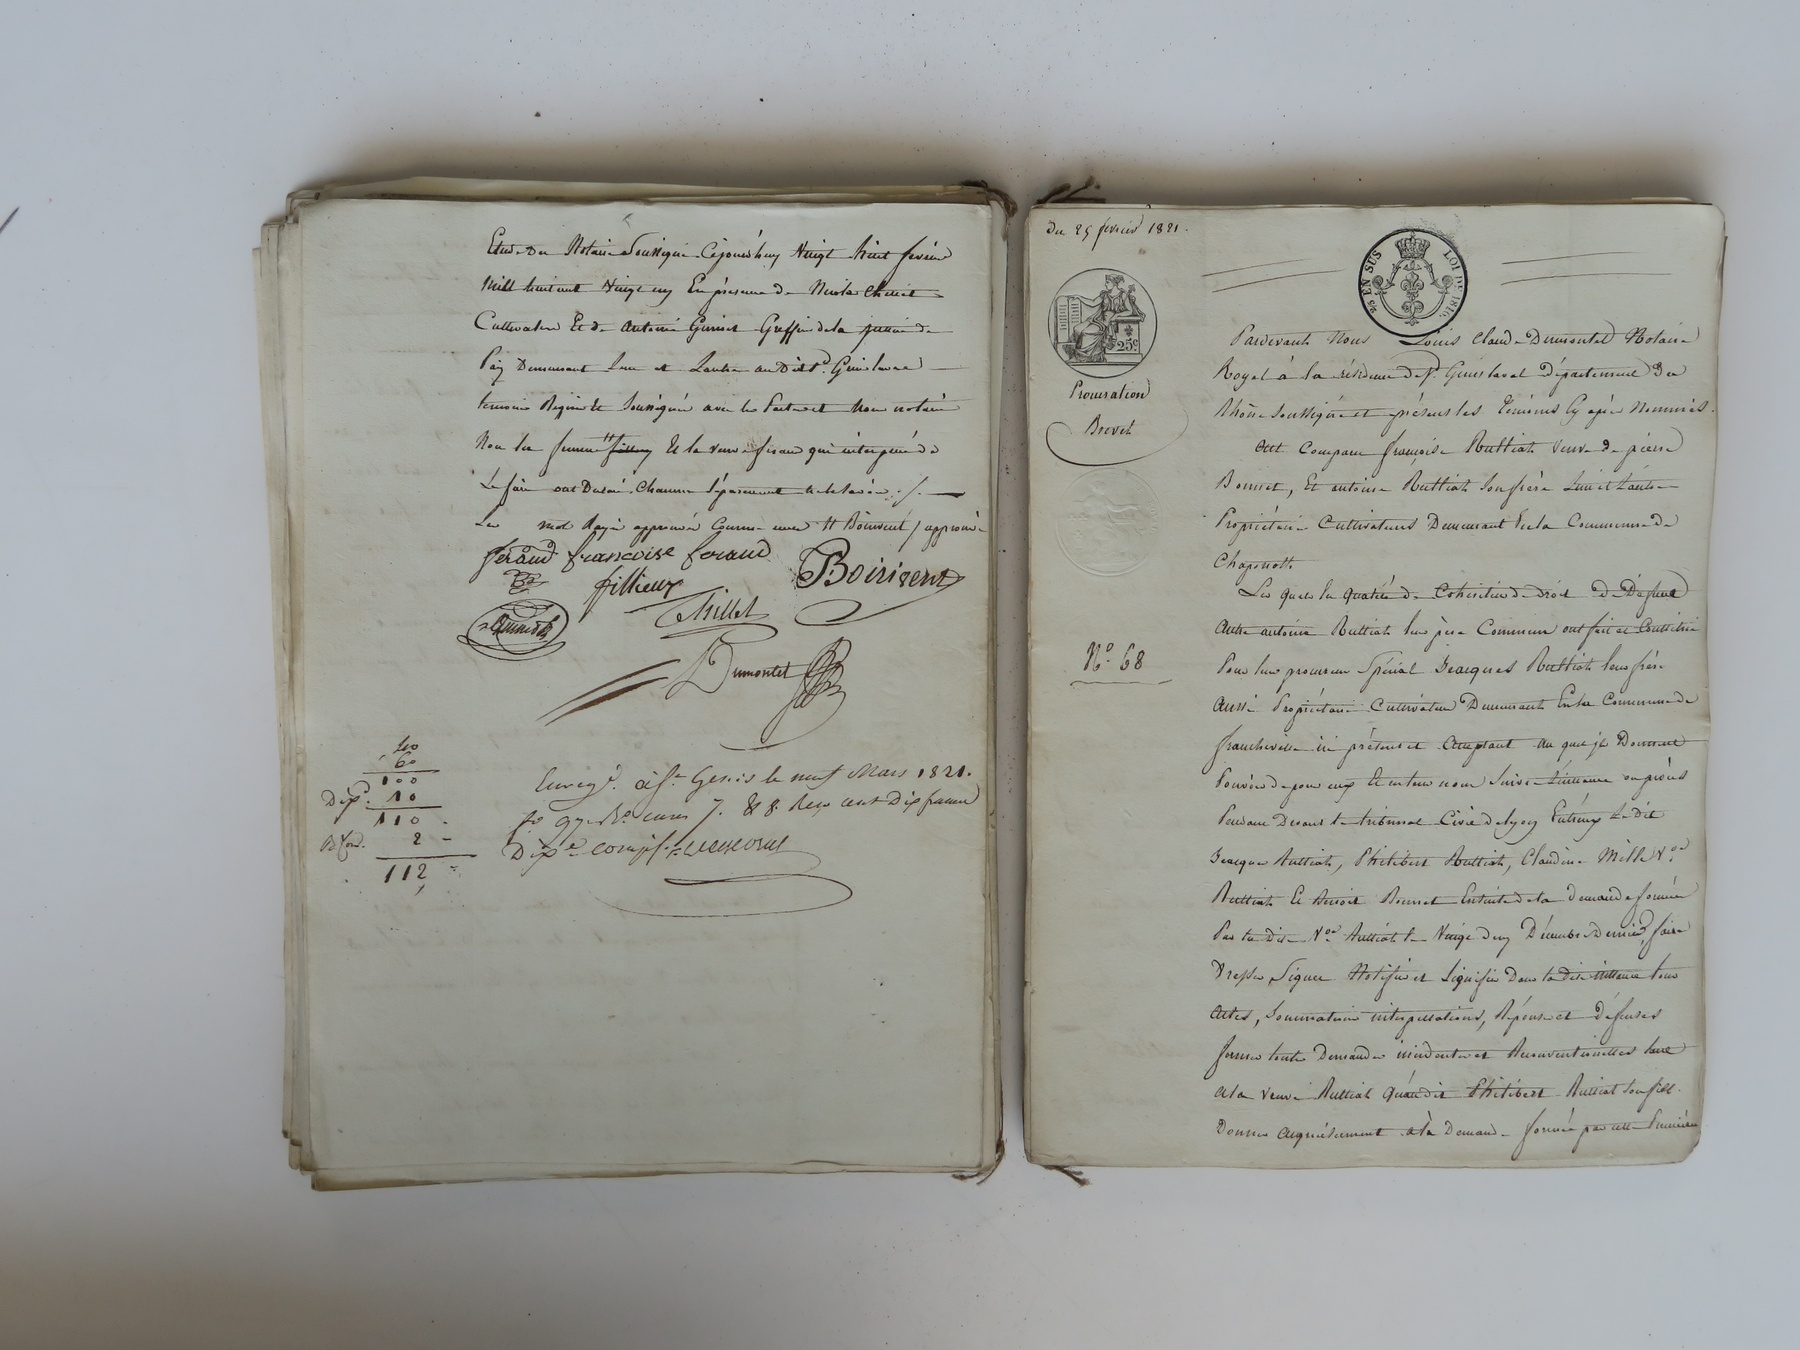 Etude du Notaire Soussigné Cejourd'huy Vingt huit février
Mill huit cent Vingt un En présence de Nicolas Chillet
Cultivateur Et de antoine Guinet Greffier de la justice de
Paix Demeurant l'un et L'autre au Dit St. Genis laval
temoins Requis Et Soussignés avec les Parties et Nous notaire
Non les femme fillieux Et la veuve feraud qui interpellé de
Le faire ont Declaré Chacune Séparement ne le Savoir ./.
Les mot Rayé approuvés Comme nuls Boirivent / approuvé
feraud francoise feraud
fillieux Boirivent
Chillet
Guinet
Dumontet
Enregé. à St. Genis le neuf Mars 1821.
fo 97 Ro cases 7. & 8. Reçu cent Dix francs
Dixe. compris.
40
60
100
Dixe. 10
110
2
112
Du 25 février 1821.
25 EN SUS LOI DE 1816.
25c
Procuration
Brevet
No. 68
Pardevant Nous Louis Claude Dumontet Notaire
Royal à la résidence de St. Genis laval département du
Rhône Soussigné et présens les Témoins Cy après Nommés.
Ont Comparu françoise Rulliat Veuve de pierre
Bonnet, Et antoine Rulliat Son frère L'un et L'autre
Propriétaire Cultivateurs Demeurant En la Commune de
Chaponost
Les quels En qualité de Cohéritiers de droit de Défunt
Autre antoine Rulliat leur père Commun ont fait et Constitué
Pour leur procureur Spécial Jeacques Rulliat leur frère
Aussi Propriétaire Cultivateur Demeurant En la Commune de
francheville ici présent et acceptant au quel ils Donnent
Pouvoir de pour eux Et en leur nom Suivre L'instance
Pendante Devant le tribunal Civil de Lyon Entr'eux Le dit
Jeacque Rulliat, Philibert Rulliat, Claudine Mille Ve
Rulliat Et Benoit Bonnet Ensuite de la Demande formée
Par la Dite Ve. Rulliat le Vingt deux Décembre Dernier, faire
Dresser, Signer Notifier et Signifier Dans la Dite instance tous
Actes, Sommations interpellations, Réponses et défenses
former toutes Demandes incidentes et Reconventionelles tant
à la veuve Rulliat qu'au dit Philibert Rulliat Son fils.
Donner acquiescement à la Demande formée par celle Première